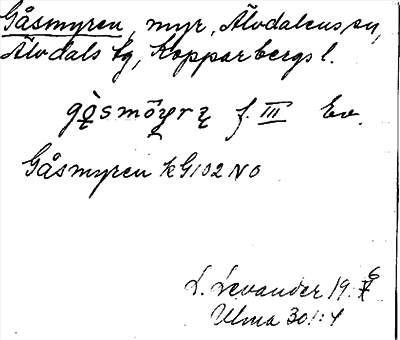 Gåsmyren, myr, Älvdalens sn,
Älvdals tg, Kopparbergs l.
gą̊̀smöyrą f. III Ev.
Gåsmyren kG102NO
L. Levander 19
Ulma 301:4